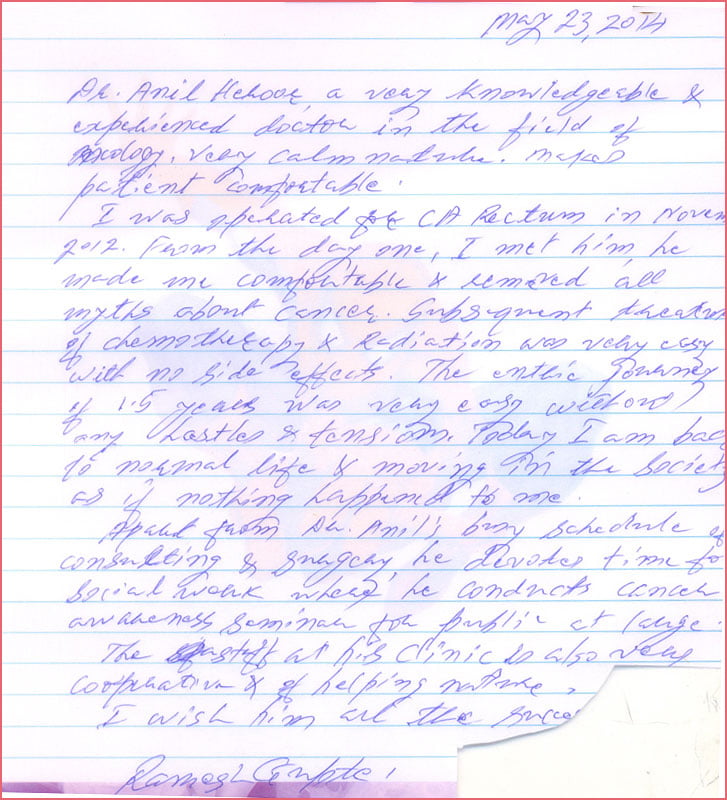 May 23, 2014
Dr. Anil Heroor a very knowledgeable &
experienced doctor in the field of
oncology. very calm nature. makes
patient comfortable.
I was operated for CA Rectum in Novem
2012. From the day one, I met him he
made me comfortable & removed all
myths about cancer. Subsequent treatm
of chemotherapy & Radiation was very easy
with no side effects. The entire journey
of 1.5 years was very easy without
any hastles & tensions. Today I am bac
to normal life & moving in the society
as if nothing happened to me.
Apart from Dr. Anil's busy schedule of
consulting & surgery, he devotes time fo
social work where he conducts cancer
awareness seminar for public at large.
The staff at his clinic is also very
cooperative & of helping nature.
I wish him all the succe
Ramesh Gupte.